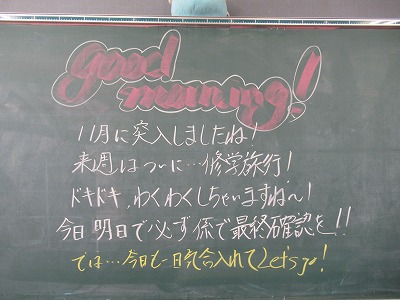 good
morning!
11月に突入しましたね!
来週はついに…修学旅行!
ドキドキ、わくわくしちゃいますね〜!
今日明日で必ず係で最終確認を!!
では…今日も一日気合入れてLet's go!